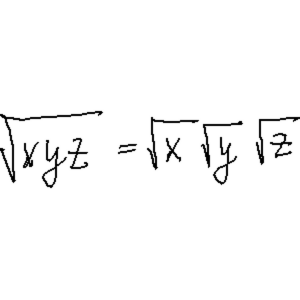 √(xyz) = √x √y √z